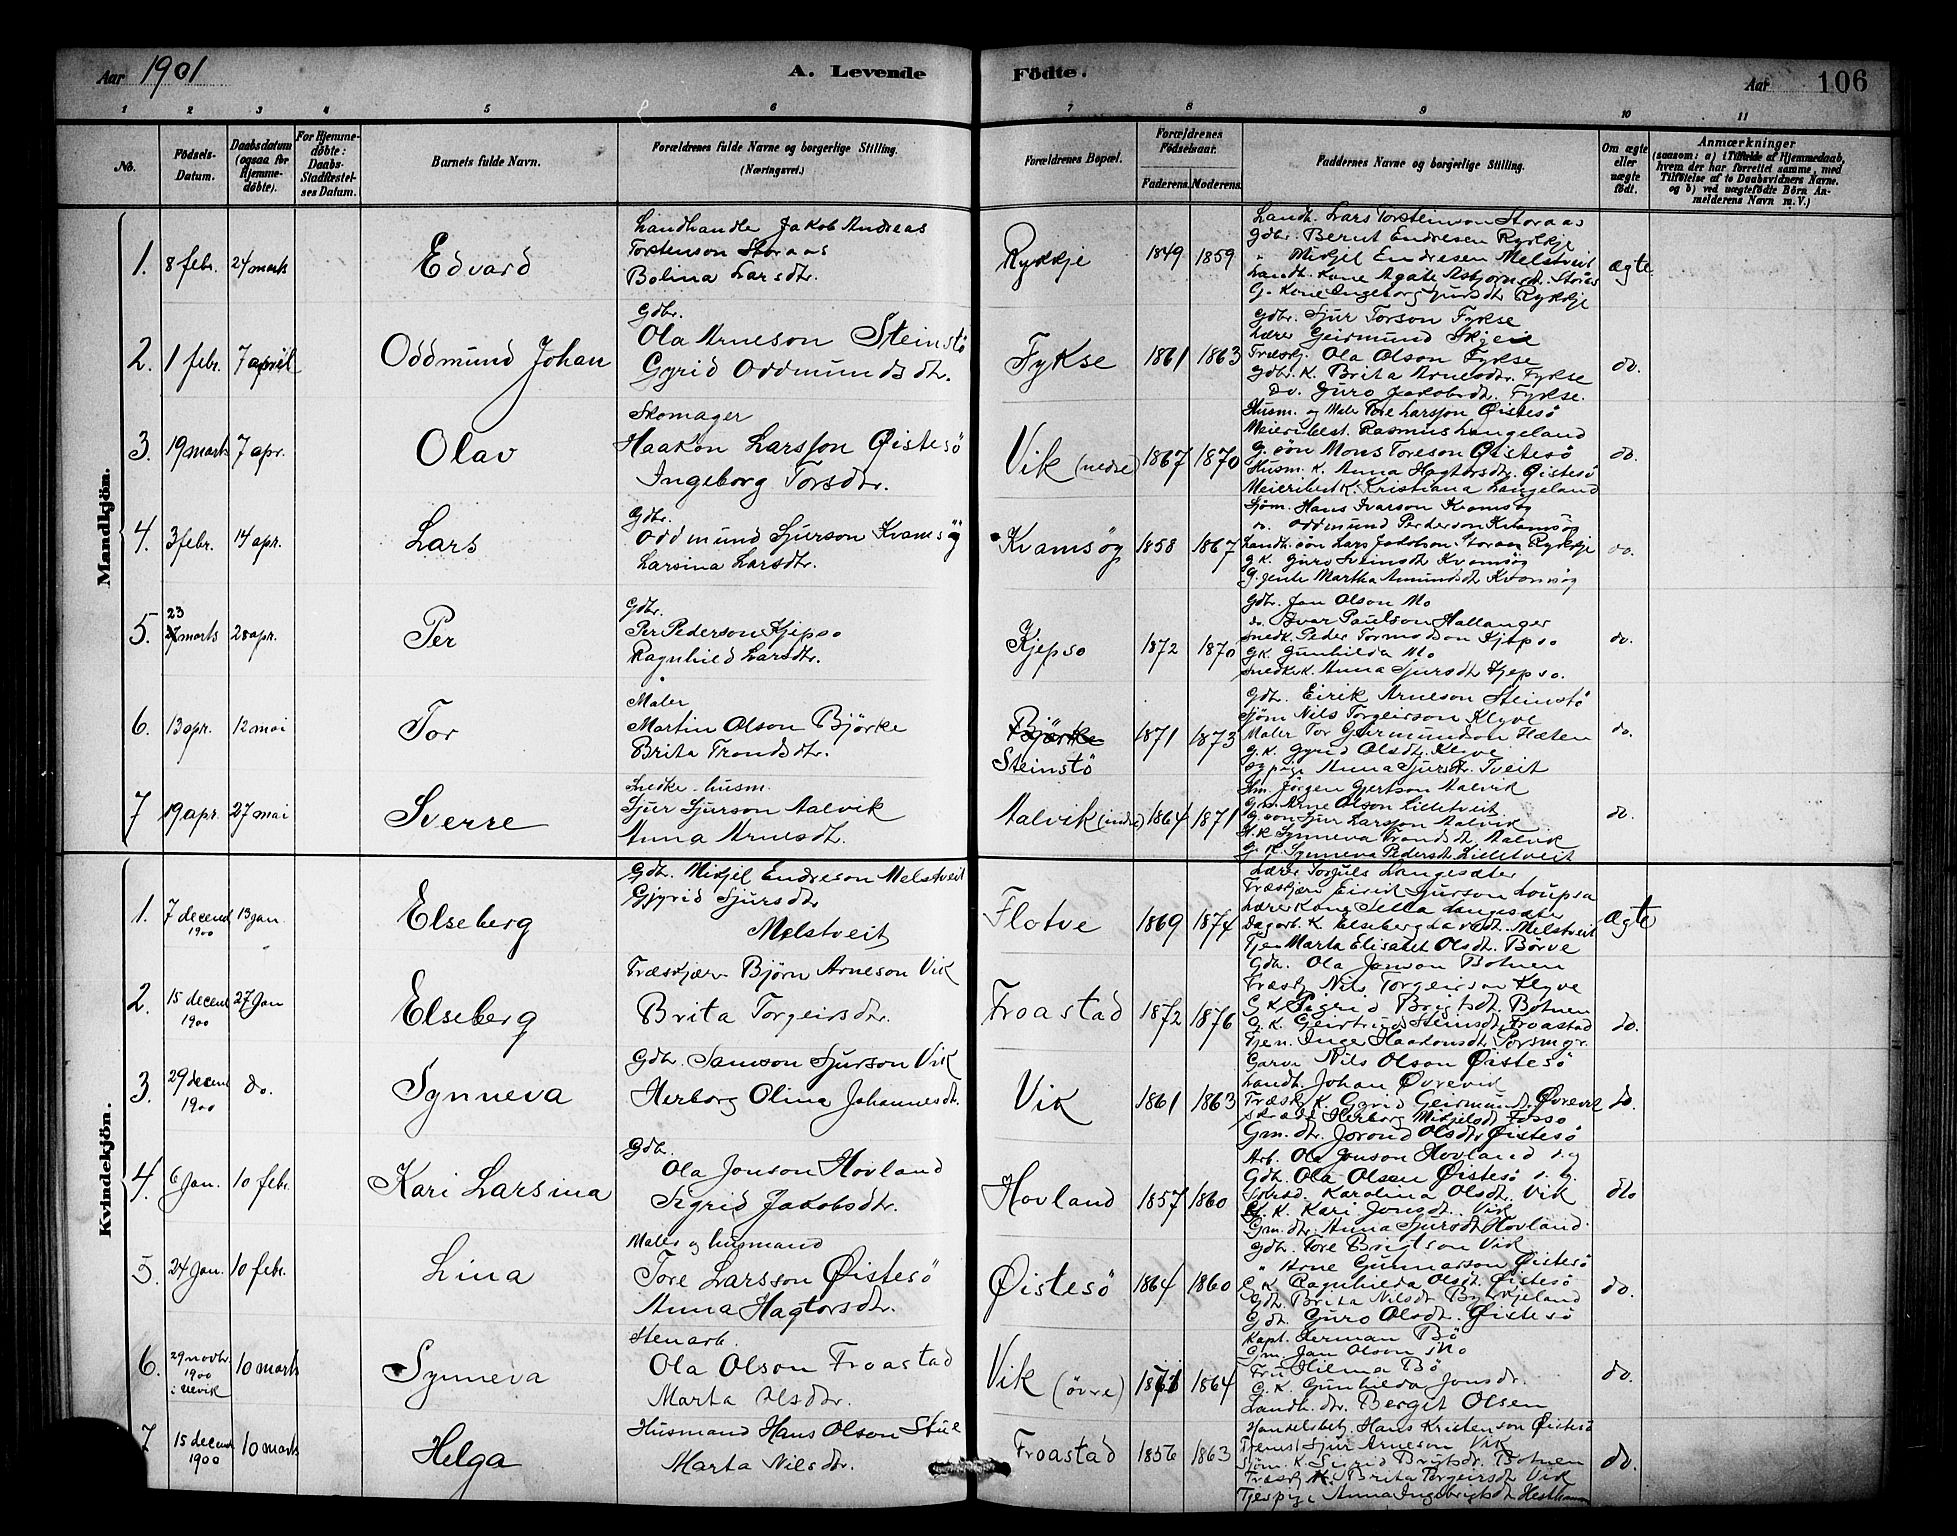 Aar 1901
A. Levende Födte.
Aar 106
1 2 3 4 5 6 7 8 9 10 11
No.
Födsels-Datum.
Daabsdatum (ogsaa for Hjemme-döbte).
For Hjemme-döbte: Daabs-Stadfæstel-ses Datum.
Barnets fulde Navn.
Forældrenes fulde Navne og borgerlige Stilling.
(Næringsvei.)
Forældrenes Bopæl.
Forældrenes Födselsaar.
Faderens. Moderens.
Faddernes Navne og borgerlige Stilling.
Om ægte eller uægte födt.
Anmærkninger
(saasom: a) i Tilfælde af Hjemmedaab,
hvem der har forrettet samme, med
Tilföielse af to Daabsvidners Navne.
og b) ved uægtefödte Börn An-
melderens Navn m. V.)
Mandkjön.
1. 8 febr. 24 marts Edvard
Landhandler Jakob Andreas
Torstenson Storaas
Bolina Larsdtr.
Rykkje 1849 1859
Landh. Lars Torsteinson Storaas
Gdbr. Bernt Endresen Rykkje
" Mikjel Endresen Melstveit
Landh. Kone Agate Asbjörnsdt. Storaas
G. Kone Ingeborg Sjursdt Rykkje
ægte
2. 1 febr. 7 april Oddmund Johan
Gdbr.
Ola Arneson Steinstö
Gyrid Oddmundsdtr.
Fykse 1861 1863
Gdbr. Sjur Torson Fykse
Lærer Geirmund Skjeie
Træskj. Ola Olson Fykse
Gdbr. K. Brita Arnesdtr. Fykse
Do. Guro Jakobsdt. Fykse.
do.
3. 19 marts 7 apr. Olav
Skomager
Haakon Larsson Øistesö
Ingeborg Torsdtr.
Vik (nedre) 1867 1870
Husm. og Maler Tore Larsson Øistesö
Meieribest. Rasmus Langeland
G. sön Mons Toreson Øistesö
Husm. K. Anna Hagtorsdtr. Øistesö
Meieribest K. Kristiana Langeland
do.
4. 3 febr. 14 apr. Lars
Gdbr.
Oddmund Sjurson Kvamsög
Larsina Larsdtr.
Kvamsög 1858 1867
Sjöm. Hans Ivarson Kvamsög
do. Oddmund Pederson Kvamsög
Landh. sön Lars Jakobson Storaas Rykkje
G. K. Guro Sveinsdt Kvamsög
G. jente Martha Amundsdt Kvamsög
do.
5. 23 marts 28 apr. Per
Gdbr.
Per Pederson Kjepso
Ragnhild Larsdtr.
Kjepso 1872 1870
Gdbr. Jan Olson Mo
do. Ivar Paulson Hallanger
Snedk. Peder Tormodson Kjepso
GK Gunhilda Mo
Snedk K. Anna Sjursdt Kjepso.
do.
6. 13 apr. 12 mai Tor
Maler
Martin Olson Björke
Brita Trondsdtr.
Björke
Steinstö 1871 1873
Gdbr. Eirik Arneson Steinstö
Sjöm Nils Torgeirson Klyve
Maler Tor Geirmundson Flæten
G. K. Gyrid Olsdt. Klyve
Sypige Anna Sjursdtr. Tveit
do.
7 19 apr. 27 mai Sverre
Snedker husm.
Sjur Sjurson Aalvik
Anna Arnesdt.
Aalvik (indre) 1864 1871
Hm. Jörgen Gjertson Aalvik
Gm. Arne Olson Lilletveit
G. sön Sjur Larsson Aalvik
H. K Synneva Trondsdt Aalvik
G. K. Synneva Pedersdt Lilletveit
do.
Kvindekjön.
1. 7 decemb 1900 13 jan. Elseberg
Gdbr. Mikjel Endreson Melstveit
Gjyrid Sjursdtr
Melstveit
Flotve 1869 1874
Lærer Torgils Langesæter
Træskjærer Eirik Sjurson Soupsa
Lærer Kone Sella Langesæter
Dagarb. K Elseberg Larsdt. Melstveit
Tjen Marta Elisabet Olsdt. Börve
Ægte
2. 15 decemb 1900 27 Jan Elseberg
Træskjær. Björn Arneson Vik
Brita Torgeirsdtr.
Froastad 1872 1876
Gdbr. Ola Jonson Botnen
Træskj. Nils Torgeirson Klyve
G. K. Sigrid Brigtsdt. Botnen
G. K. Geirtrud Steinsdt. Froastad
Tjen. Inga Haakonsdt. Porsmyr.
do.
3. 29 decemb 1900 do. Synneva
Gdbr. Samson Sjurson Vik
Herborg Olina Johannesdt.
Vik 1861 1863
Garver Nils Olson Øistesö
Landh. Johan Øvrevik
Træskj. K. Gyrid Geirmundsdt. Øvrevik
Herborg Mikjelsdt Fosso
Gm. dtr. Jorond Olsdtr Øistesö
do.
4. 6 Jan. 10 febr. Kari Larsina
Gdbr.
Ola Jonson Hovland
Sigrid Jakobsdtr.
Hovland 1857 1860
Arb. Ola Jonson Hovland
Gdbr. Ola Olsen Øistesö
Karolina Olsdt. Vik
G. K. Kari Jonsdt. Vik
Gm. dtr. Anna Sjursdt Hovland.
do
5. 24 Jan. 10 febr. Lina
Maler og husmand
Tore Larsson Øistesö
Anna Hagtorsdtr.
Øistesö 1864 1860
Gdbr. Tore Brigtson Vik
" Arne Gunnarson Øistesö
G. K. Ragnhilda Olsdt. Øistesö
Gdtr. Brita Nilsdt Byrkjeland
G. dt. Guro Olsdt. Øistesö
do.
6. 29 novbr. 1900 i Ulvik 10 marts Synneva
Stenarb.
Ola Olson Froastad
Marta Olsdtr.
Vik (övre) 1871 1864
Kapt. Herman Bö
Gm. Jan Olson Mo
Fru Hilma Bö
G. K. Gunhilda Jonsdt.
Landh. dr. Bergit Olsen
do.
7 15 decemb 1900 10 marts Helga
Husmand Hans Olson Stue
Marta Nilsdtr.
Froastad 1856 1863
Handelsbetj. Hans Kristenson Øistesö
Tjenest Sjur Arneson Vik
Sjöm. K. Sigrid Brigtsdt. Botnen
Træskj. K. Brita Torgeirsdt Vik
Tjen pige Anna Ingebrigtsdt Hesthamar
do.